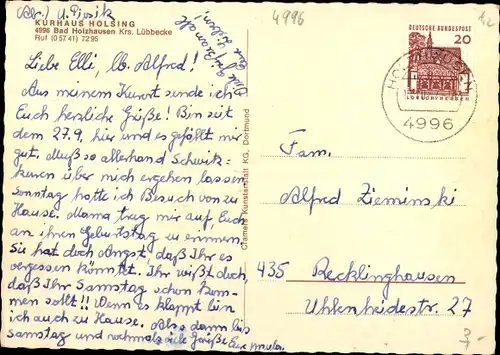 4996
KURHAUS HOLSING
4996 Bad Holzhausen Krs. Lübbecke
Ruf (05741) 7295
Liebe Elli, lb. Alfred!
Aus meinem Kurort sende ich
Euch herzliche Grüße! Bin seit
dem 27.9, hier und es gefällt mir
gut. Muß so allerhand Schwitz=
kuren über mich ergehen lassen
Sonntag hatte ich Besuch von zu
Hause. Mama trug mir auf, Euch
an ihren Geburtstag zu erinnern,
Sie hat doch Angst, daß Ihr es
vergessen könntet. Ihr wißt doch,
daß Ihr Samstag schon kom-
men sollt!! Wenn es klappt bin
ich auch zu Hause. Also dann bis
Samstag und nochmals viele Grüße Eure
Cramers Kunstanstalt KG, Dortmund
DEUTSCHE BUNDESPOST
20
LORSCH/HESSEN
4996
Fam.
Alfred Zieminski
435 Recklinghausen
Uhlenheidestr. 27
7.-